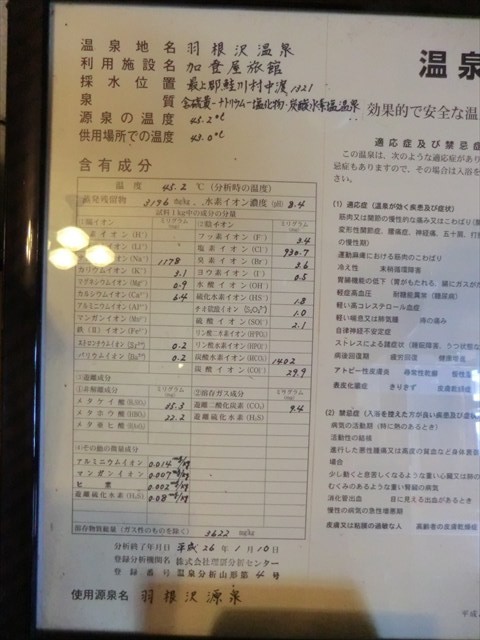 温泉地名 羽根沢温泉
利用施設名 加登屋旅館
採水位置 最上郡鮭川村中渡1321
泉質 含硫黄-ナトリウム-塩化物・炭酸水素塩温泉
源泉の温度 45.2℃
供用場所での温度 43.0℃
含有成分
温度 45.2 ℃ (分析時の温度)
蒸発残留物 3196 mg/kg、水素イオン濃度(pH) 8.4
試料1kg中の成分の分量
ナトリウムイオン(Na⁺) 1178
カリウムイオン(K⁺) 3.1
マグネシウムイオン(Mg²⁺) 0.9
カルシウムイオン(Ca²⁺) 6.4
アルミニウムイオン(Al³⁺)
マンガンイオン(Mn²⁺)
鉄(Ⅱ)イオン(Fe²⁺)
ストロンチウムイオン(Sr²⁺) 0.2
バリウムイオン(Ba²⁺) 0.2
②陰イオン ミリグラム(mg)
フッ素イオン(F⁻) 3.4
塩素イオン(Cl⁻) 930.7
臭素イオン(Br⁻) 3.6
ヨウ素イオン(I⁻) 0.5
水酸イオン(OH⁻)
硫化水素イオン(HS⁻) 1.8
チオ硫酸イオン(S₂O₃²⁻) 1.0
硫酸イオン(SO₄²⁻) 2.1
炭酸水素イオン(HCO₃⁻) 1402
炭酸イオン(CO₃²⁻) 29.9
③遊離成分
①非解離成分 ミリグラム(mg)
メタケイ酸(H₂SiO₃) 35.3
メタホウ酸(HBO₂) 22.2
②溶存ガス成分 ミリグラム(mg)
遊離二酸化炭素(CO₂) 9.4
遊離硫化水素(H₂S)
④その他の微量成分
アルミニウムイオン 0.014 mg/kg
マンガンイオン 0.007 mg/kg
ヒ素 0.002 mg/kg
遊離硫化水素(H₂S) 0.08 mg/kg
溶存物質総量(ガス性のものを除く) 3622 mg/kg
分析終了年月日 平成26年1月10日
登録分析機関名 株式会社理研分析センター
登録番号 温泉分析山形第4号
使用源泉名 羽根沢源泉
温泉
効果的で安全な温
適応症及び禁忌症
この温泉は、次のような適応症があり
忌症もありますので、その場合は入浴を
さい。
(1) 適応症(温泉が効く疾患及び症状)
筋肉又は関節の慢性的な痛み又はこわばり
変形性関節症、腰痛症、神経痛、五十肩、打
の慢性期)
運動麻痺における筋肉のこわばり
冷え性 末梢循環障害
胃腸機能の低下(胃がもたれる、腸にガスが
軽症高血圧 耐糖能異常(糖尿病)
軽い高コレステロール血症
軽い喘息又は肺気腫 痔の痛み
自律神経不安定症
ストレスによる諸症状(睡眠障害、うつ状態な
病後回復期 疲労回復 健康増進
アトピー性皮膚炎 尋常性乾癬
表皮化膿症 きりきず 皮膚乾燥症
(2) 禁忌症(入浴を控えた方が良い疾患及び症状
病気の活動期(特に熱のあるとき)
活動性の結核
進行した悪性腫瘍又は高度の貧血など身体衰弱
場合
少し動くと息苦しくなるような重い心臓又は肺の
むくみのあるような重い腎臓の病気
消化管出血 目に見える出血があるとき
慢性の病気の急性増悪期
皮膚又は粘膜の過敏な人 高齢者の皮膚乾燥症
平成